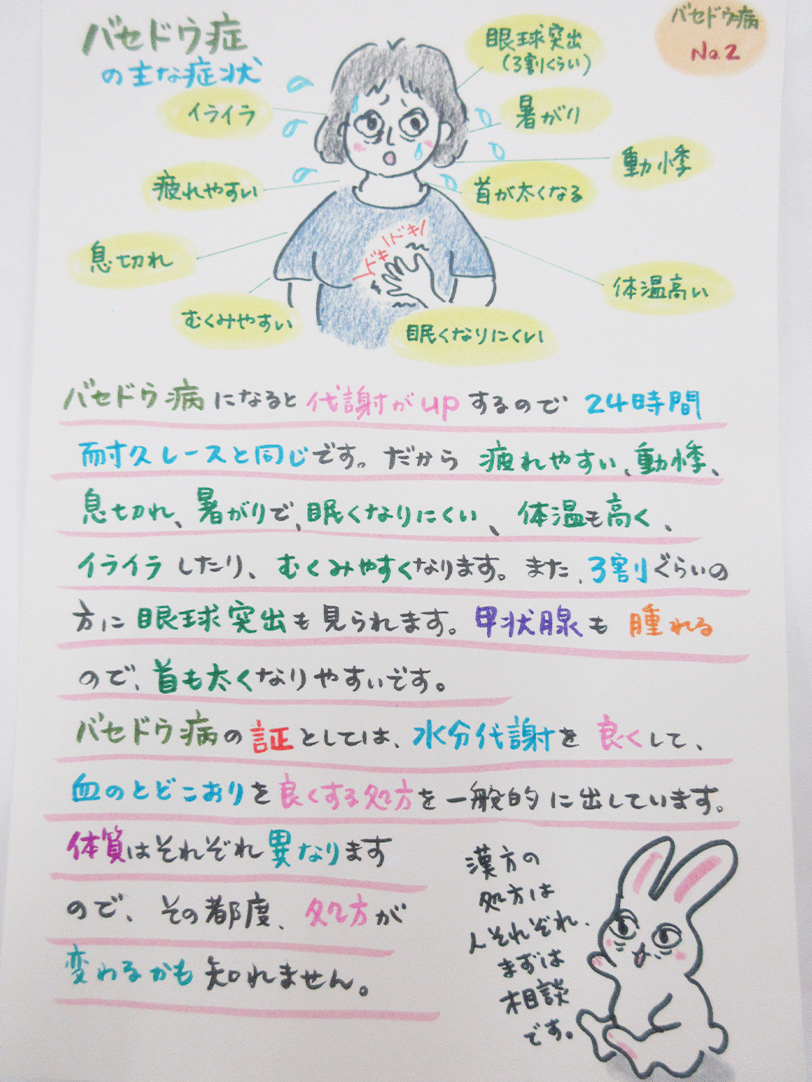 バセドウ症
の主な症状
バセドウ病
No.2
眼球突出
(3割くらい)
イライラ
暑がり
動悸
疲れやすい
首が太くなる
息切れ
ドキ
ドキ
体温高い
むくみやすい
眠くなりにくい
バセドウ病になると代謝がupするので24時間
耐久レースと同じです。だから疲れやすい、動悸、
息切れ、暑がりで、眠くなりにくい、体温も高く、
イライラしたり、むくみやすくなります。また、3割ぐらいの
方に眼球突出も見られます。甲状腺も腫れる
ので、首も太くなりやすいです。
バセドウ病の証としては、水分代謝を良くして、
血のとどこおりを良くする処方を一般的に出しています。
体質はそれぞれ異なります
ので、その都度、処方が
変わるかも知れません。
漢方の
処方は
人それぞれ、
まずは
相談
です。